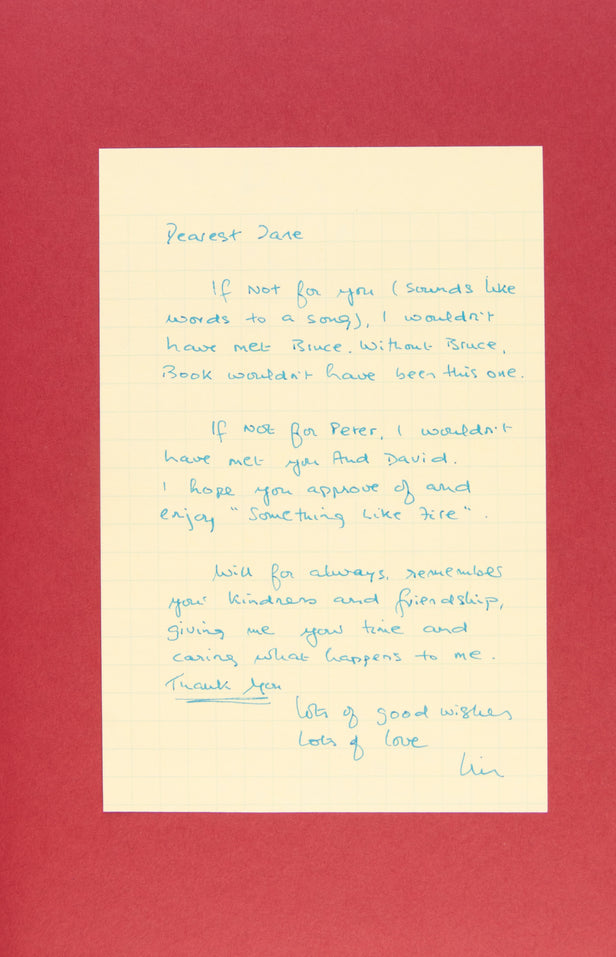 Dearest Jane
If Not for you (sounds like
words to a song), I wouldn't
have met Bruce. Without Bruce,
Book wouldn't have been this one.
If not for Peter, I wouldn't
have met you And David.
I hope you approve of and
enjoy "Something Like Fire".
Will for always, remember
your kindness and friendship,
giving me your time and
caring what happens to me.
Thank you
lots of good wishes
Lots of love